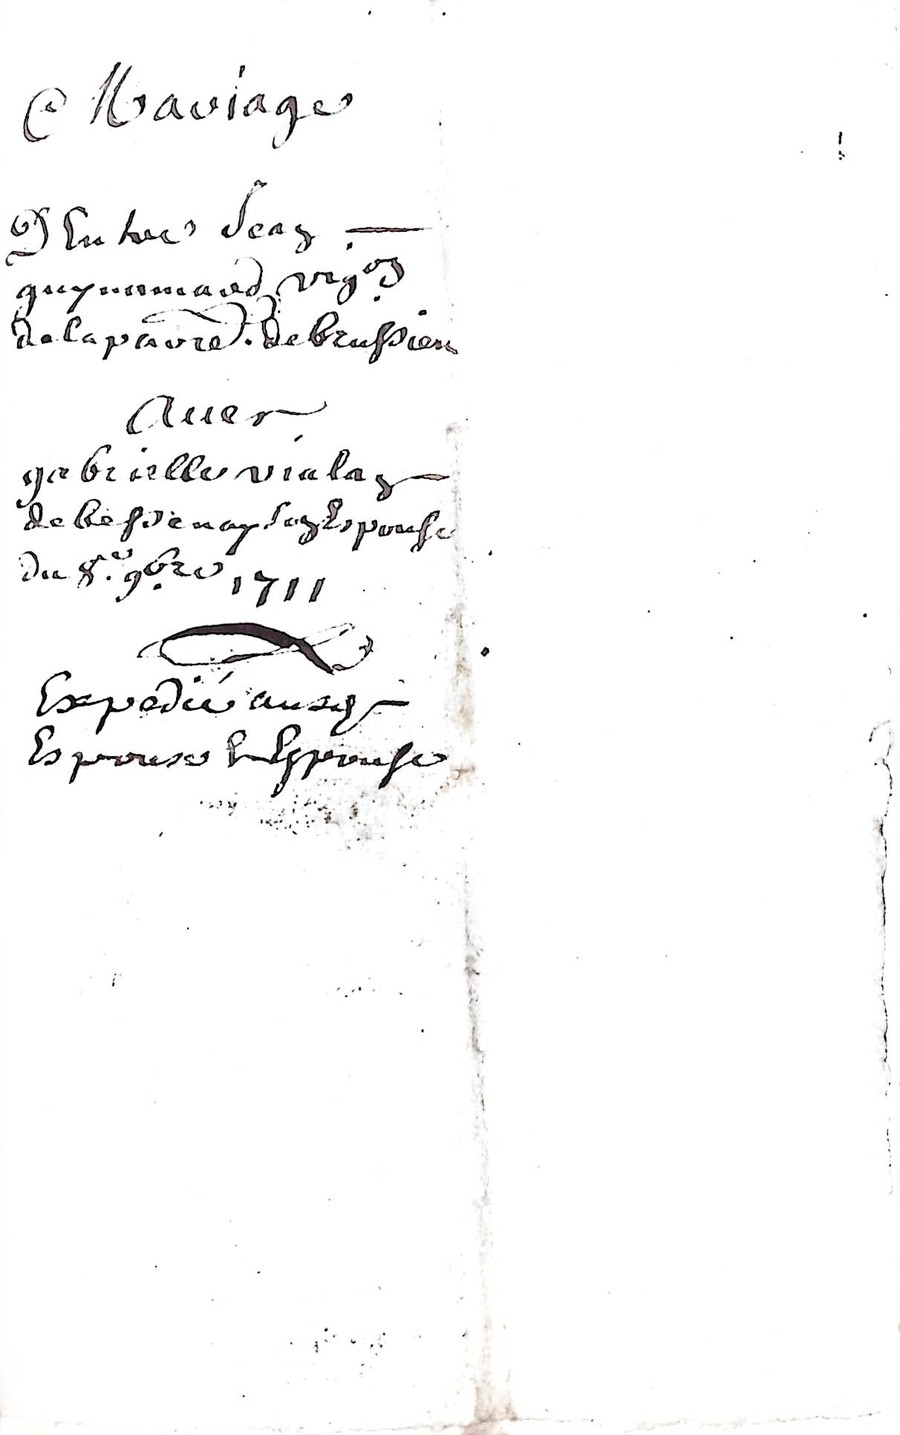 Mariage
D'Entre Jean
guynamard vig.on
de la parre. de brussieu
Avec
gabrielle viala
de bessenay son Espouse
du 8.e 9.bre 1711
Expedié aux
Espoux Et Espouse